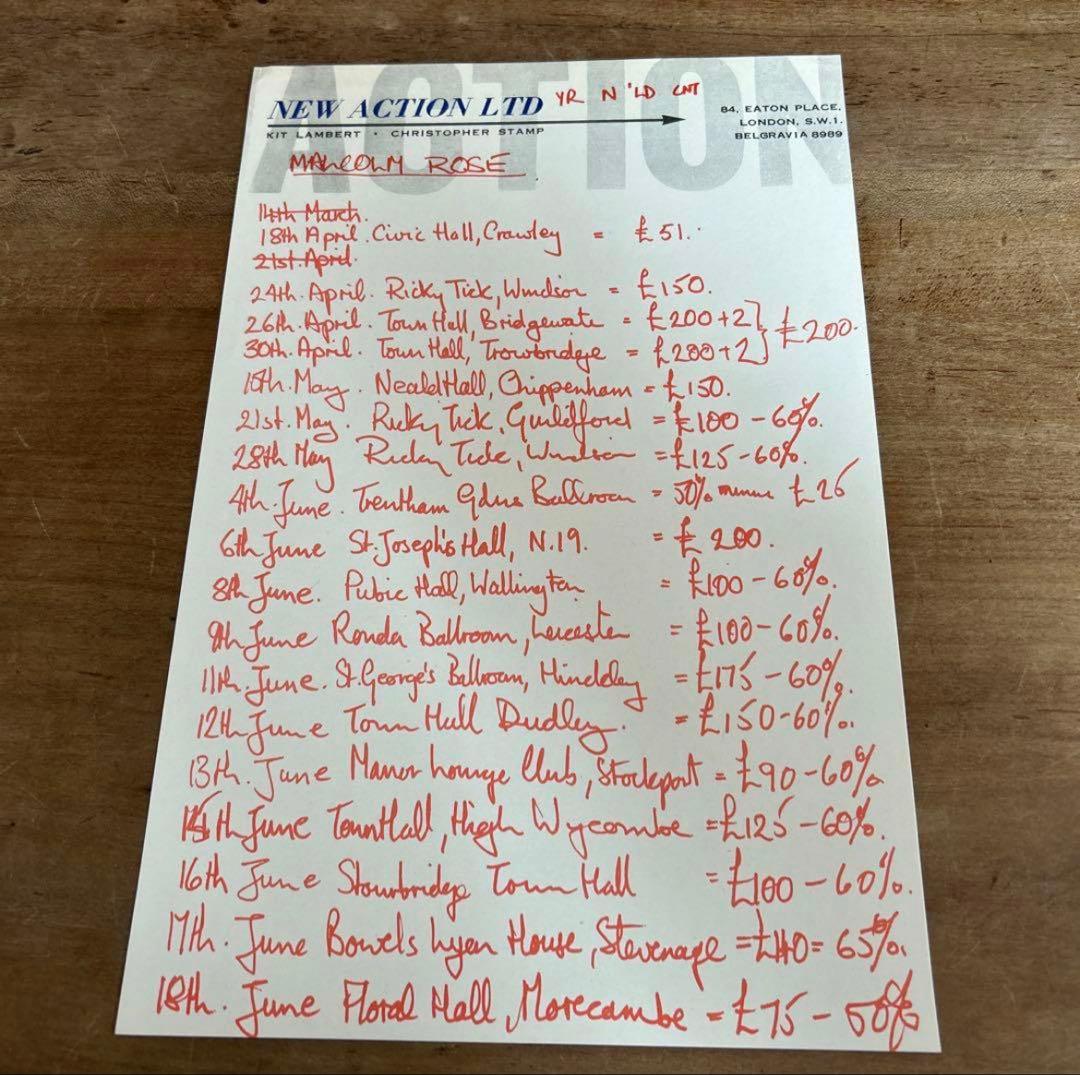 ACTION
NEW ACTION LTD YR N 'LD CNT
KIT LAMBERT · CHRISTOPHER STAMP
84, EATON PLACE,
LONDON, S.W.1.
BELGRAVIA 8989
MALCOLM ROSE
14th March.
18th April. Civic Hall, Crawley = £51.
21st April.
24th. April. Ricky Tick, Windsor = £150.
26th. April. Town Hall, Bridgewate = £200+2
30th. April. Town Hall, Trowbridge = £200+2 } £200.
15th. May. Neald Hall, Chippenham = £150.
21st. May. Ricky Tick, Guildford = £100 - 60%.
28th May Ricky Tick, Windsor = £125 - 60%.
4th. June. Trentham Gdns Ballroom = 50% minus £25
6th June St. Joseph's Hall, N.19. = £200.
8th June. Pubic Hall, Wallington = £100 - 60%.
9th June Ronda Ballroom, Leicester = £100 - 60%.
11th. June. St. George's Ballroom, Hinckley = £175 - 60%.
12th June Town Hall Dudley. = £150 - 60%.
13th. June Manor Lounge Club, Stockport = £90 - 60%
15th June Town Hall, High Wycombe = £125 - 60%.
16th June Stourbridge Town Hall = £100 - 60%.
17th. June Bowels Lyen House, Stevenage = £140 = 65%.
18th. June Floral Hall, Morecambe = £75 - 50%